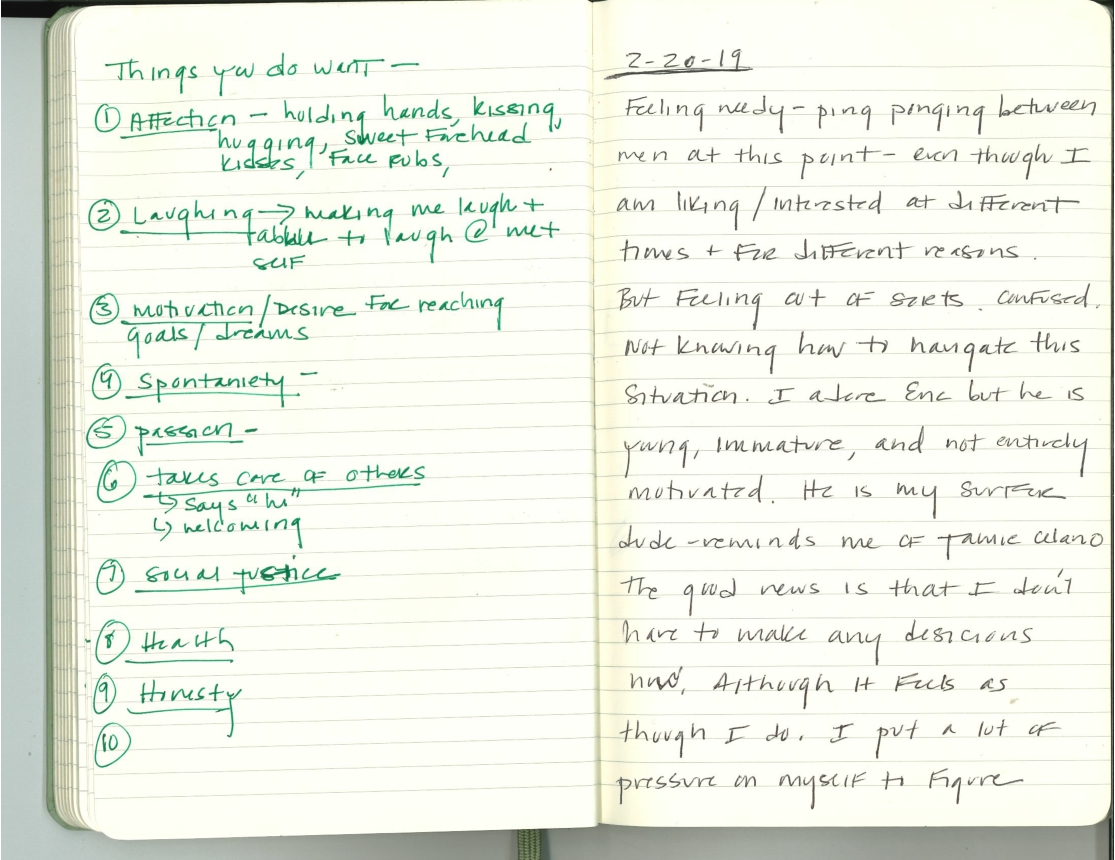 Things you do want —
① Affection — holding hands, kissing,
hugging, sweet forehead
kisses, face rubs,
② Laughing → making me laugh +
to laugh @ me +
self
③ motivation / Desire for reaching
goals / dreams
④ Spontaniety –
⑤ passion –
⑥ takes care of others
↳ says "hi"
↳ welcoming
⑦ social justice
⑧ Health
⑨ Honesty
⑩
2-20-19
Feeling needy – ping ponging between
men at this point – even though I
am liking / interested at different
times + for different reasons.
But feeling out of sorts. confused.
Not knowing how to navigate this
situation. I adore Eric but he is
young, immature, and not entirely
motivated. He is my surfer
dude – reminds me of Jamie Celano
The good news is that I don't
have to make any desicions
now, Although it feels as
though I do. I put a lot of
pressure on myself to figure